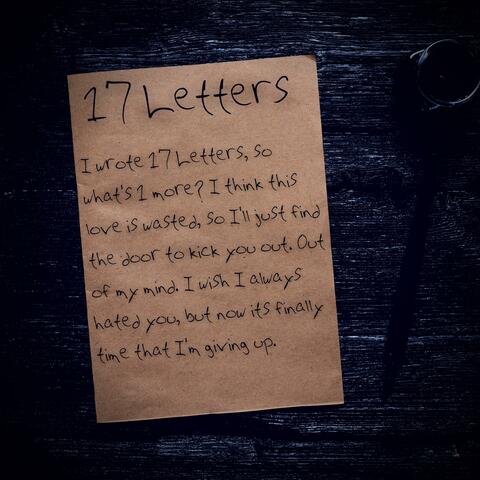 17 Letters
I wrote 17 Letters, so
what's 1 more? I think this
love is wasted, so I'll just find
the door to kick you out. Out
of my mind. I wish I always
hated you, but now its finally
time that I'm giving up.